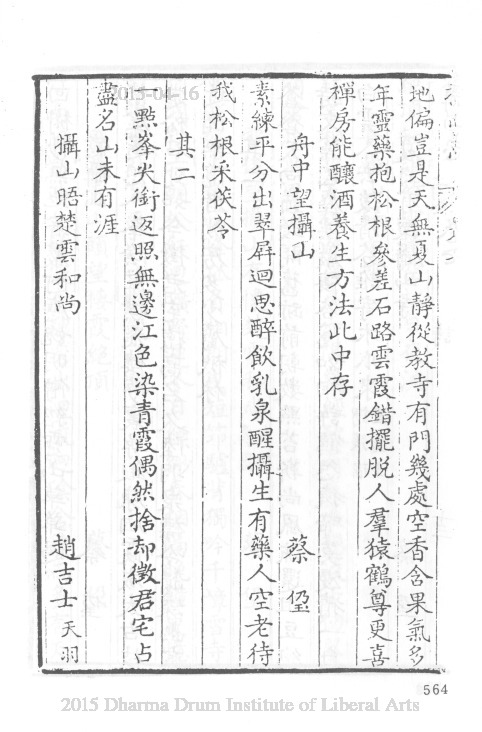 地偏豈是天無夏山靜從教寺有門幾處空香含果氣多
年靈藥抱松根參差石路雲霞錯擺脫人羣猿鶴尊更喜
禪房能釀酒養生方法此中存
舟中望攝山 蔡𡎺
素練平分出翠屛迴思醉飲乳泉醒攝生有藥人空老待
我松根采茯苓
其二
一點峯尖銜返照無邊江色染青霞偶然捨却徵君宅占
盡名山未有涯
攝山晤楚雲和尚 趙吉士 天羽
564
2015-04-16
2015 Dharma Drum Institute of Liberal Arts